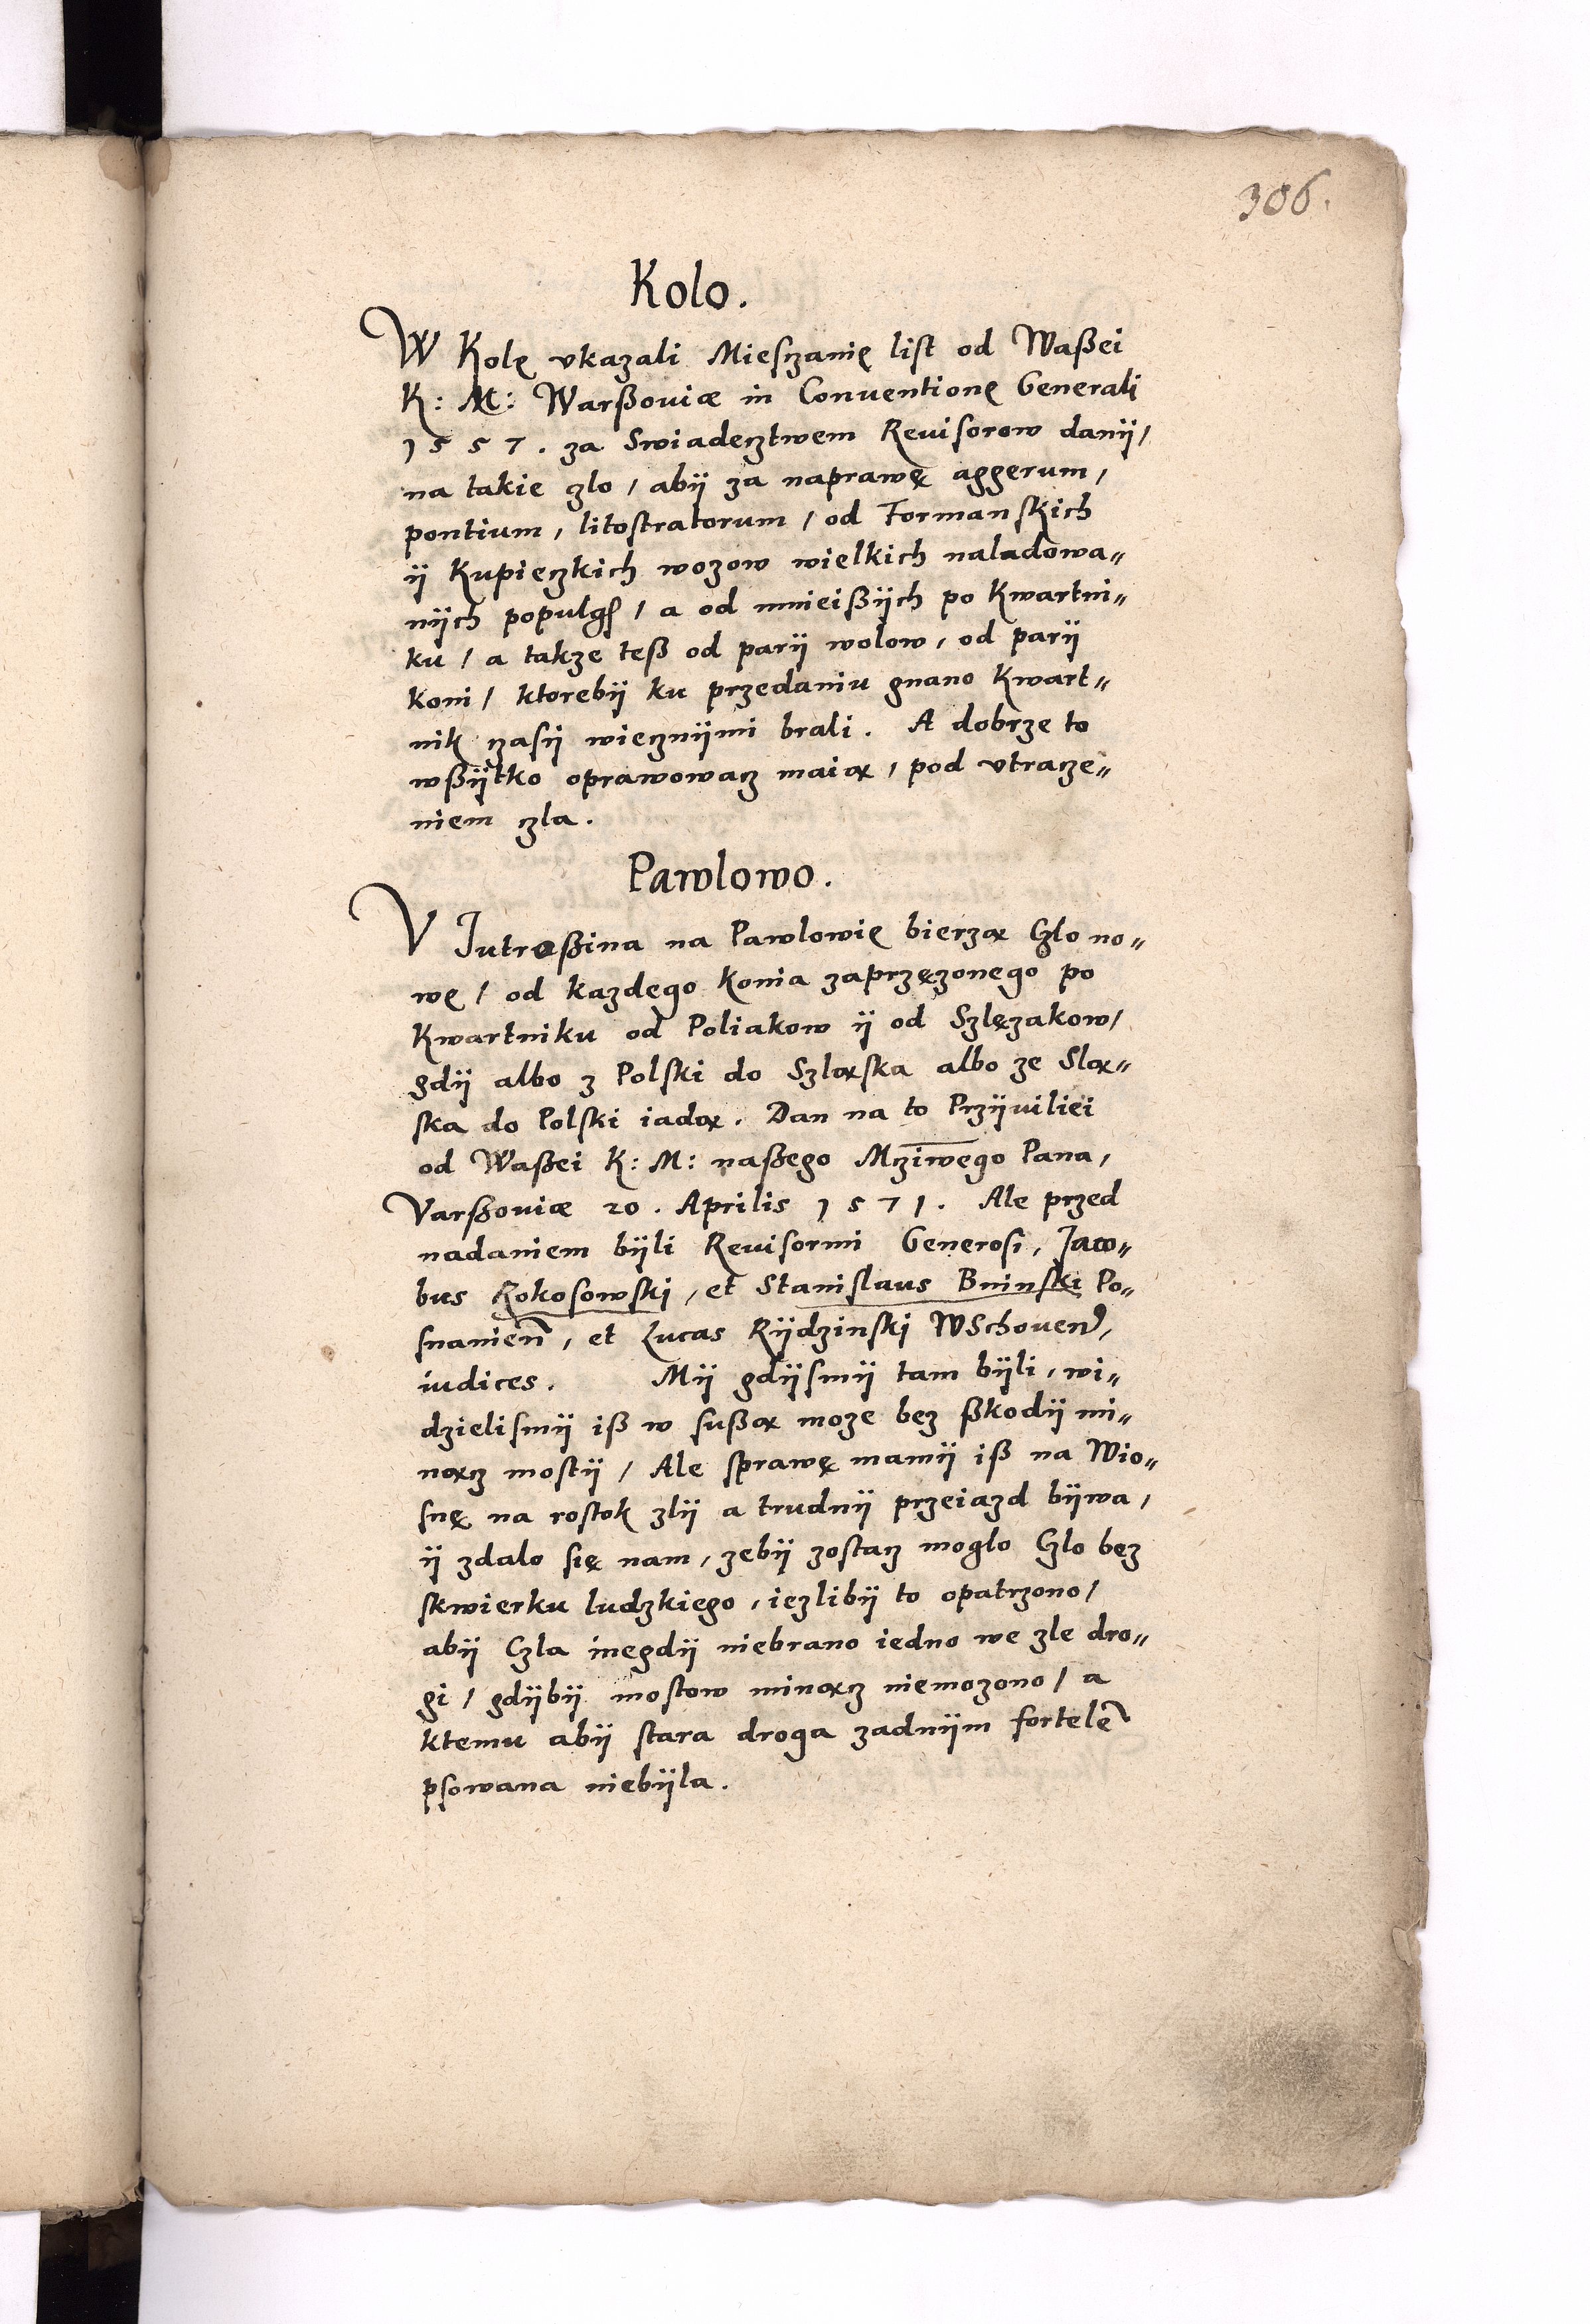 306.
Kolo.
W Kolę vkazali Miesczanię list od Waßei
K: M: Warßouiæ in Conuentionę Generali
1557. za Swiadecztwem Reuisorow danÿ/
na takie czlo / abÿ za naprawę aggerum,
pontium, litostratorum / od Formanskich
ÿ Kupieczkich wozow wielkich naladowa„
nÿch populgſ / a od mnieißÿch po Kwartni„
ku / a takze teß od parÿ wolow, od parÿ
koni / ktorebÿ ku przedaniu gnano Kwart„
nik czasÿ wiecznÿmi brali. A dobrze to
wßÿtko oprawowacz maią, pod vtracze„
niem czla.
Pawlowo.
V Jutroßina na Pawlowię bierzą Czlo no„
wę / od kazdego Konia zaprzęzonego po
Kwartniku od Poliakow ÿ od Szlęzakow/
gdÿ albo z Polski do Szląska albo ze Slą„
ska do Polski iadą. Dan na to Przÿuiliei
od Waßei K: M: naßego Mcziwego Pana,
Varßouiæ 20. Aprilis 1571. Ale przed
nadaniem bÿli Reuisormi Generosi, Jaco„
bus Rokosowski, et Stanislaus Bninski Po„
snanien̄, et Lucas Rÿdzinski WSchouen̄,
iudices. Mÿ gdÿsmÿ tam bÿli, wi„
dzielismÿ iß w sußą moze bez ßkodÿ mi„
nącz mostÿ / Ale sprawę mamÿ iß na Wio„
snę na rostok zlÿ a trudnÿ przeiazd bÿwa,
ÿ zdalo się nam, zebÿ zostacz moglo Czlo bez
skwierku ludzkiego, iezlibÿ to opatrzono/
abÿ Czla inegdÿ niebrano iedno we zle dro„
gi / gdÿbÿ mostow minącz niemozono / a
ktemu abÿ stara droga zadnÿm fortelē
psowana niebÿla.